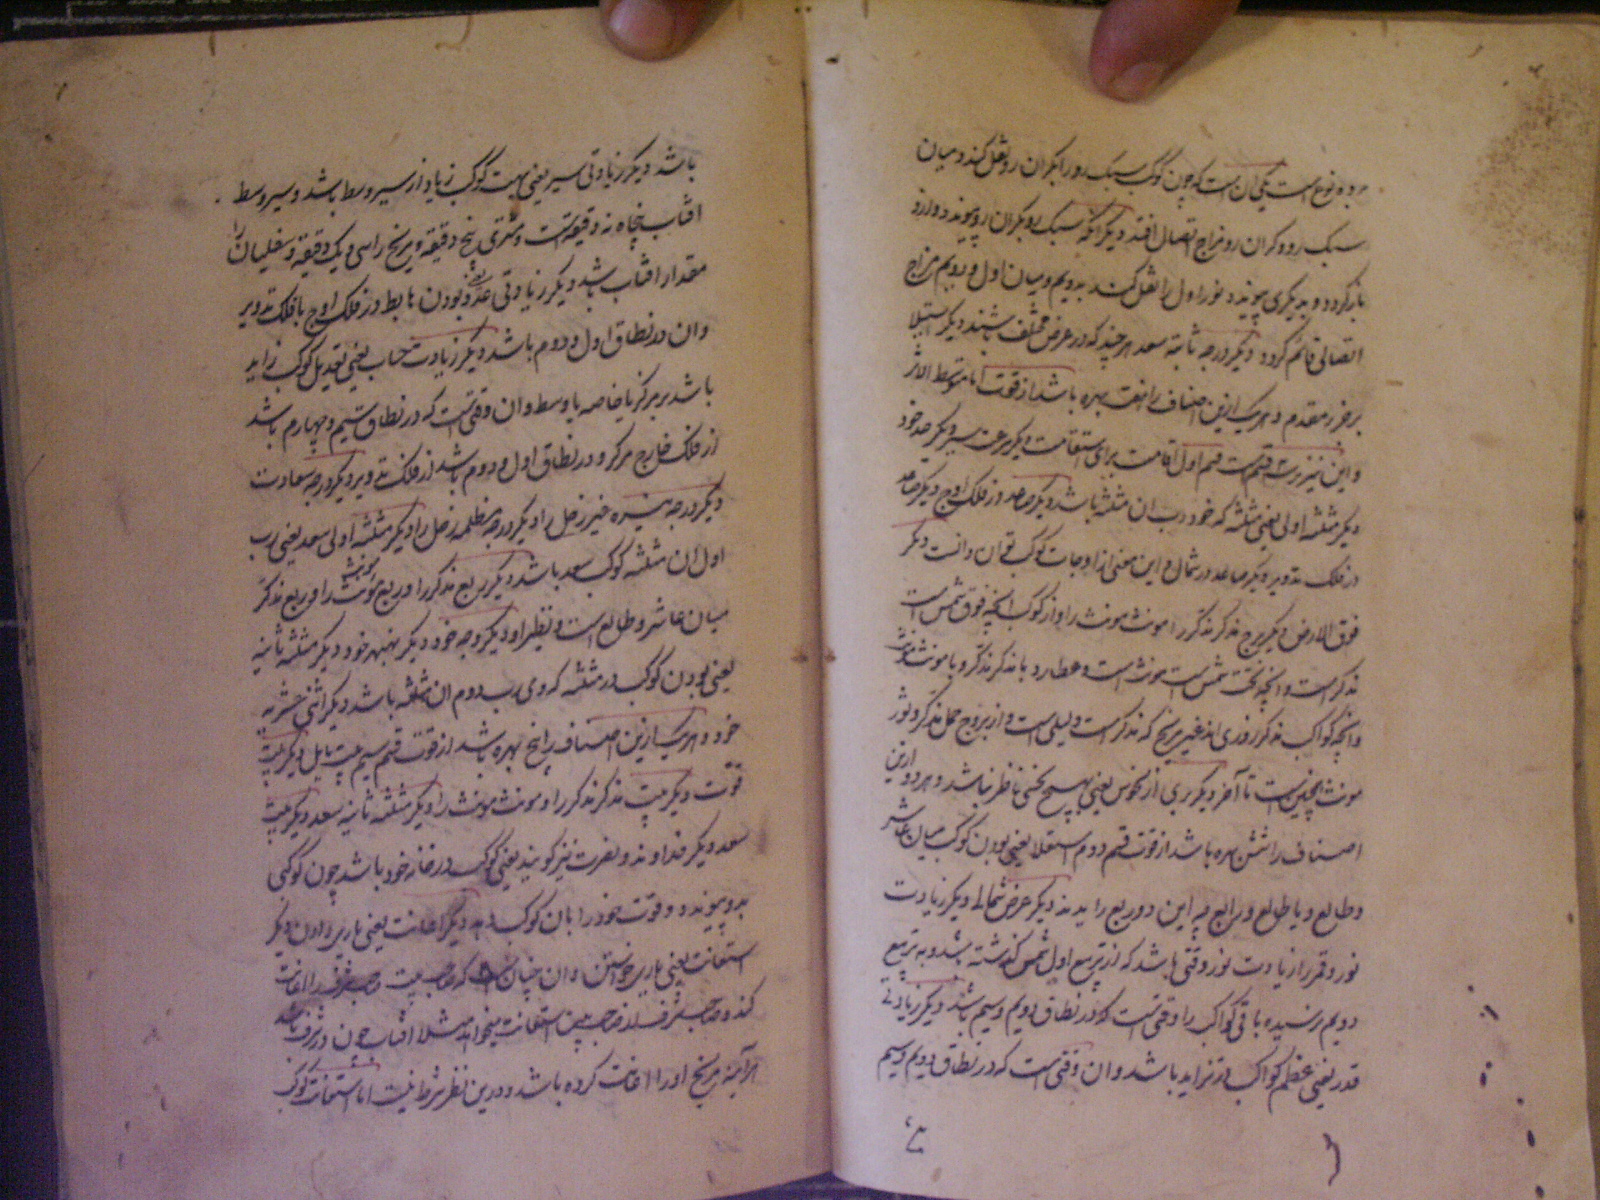 بر دو نوع است یکی آن است که چون کوکب سبک رو را بکران رو نقل کند و میان
سبک رو و کران رو مزاج اتصال افتد دیگر آنکه سبک رو بکران رو پیوندد و ازو
بازگردد و بدیگری پیوندد و نور اول را نقل کند بدویم و میان اول و دویم مزاج
اتصالی قائم گردد دیگر درجه ثانیه سعد هر چند که در عرض مختلف باشند دیگر استیلا
و هر یک ازین اصناف را بهره باشد از قوت اما متوسط الاثر
و این نیز سه قسم است قسم اول اقامت برای استقامت دیگر سرعت سیر دیگر حد خود
دیگر مثلثه اولی یعنی مثلثه که خود رب ان مثلثه باشد دیگر صاعد در فلک اوج دیگر صاعد
در فلک تدویر دیگر صاعد در شمال و این معنی از اوجات کوکب توان دانست دیگر
فوق الارض دیگر برج مذکر مذکر را و مونث مونث را و از کوکب آنچه فوق شمس است
مذکر است و آنچه تحت شمس است مونث است و عطارد با مذکر مذکر و با مونث مونث
و آنچه کواکب مذکر روزی اند غیر مریخ که مذکر است و لیلی است و از بروج حمل مذکر و ثور
مونث همچنین است تا آخر دیگر بری از نحوس یعنی بهیچ نحسی ناظر نباشد و هر دو ازین
اصناف را بهره باشد از قوت قسم دوم استعلا یعنی بودن کوکب میان عاشر
و طالع و یا طالع و رابع چه این دو ربع زاید اند دیگر عرض شمالی دیگر زیادت
نور و قمر را زیادت نور وقتی باشد که از تربیع اول شمس گذشته باشد و به تربیع
دویم نرسیده باقی کواکب را وقتی است که در نطاق دویم و سیم باشد دیگر زیادتی
قدر یعنی عظم کواکب در تزاید باشد و ان وقتی است که در نطاق دویم و سیم
باشد دیگر زیادتی سیر یعنی بهت کوکب زیاد از سیر وسط باشد و سیر وسط
افتاب پنجاه نه دقیقه است و مشتری پنج دقیقه و مریخ را سی و یک دقیقه و سفلیان را
مقدار افتاب باشد دیگر زیادتی عدد یعنی بودن هابط در فلک اوج یا فلک تدویر
و ان در نطاق اول و دوم باشد دیگر زیادت حساب یعنی تعدیل کوکب زاید
باشد بر مرکز یا خاصه یا وسط و ان وقتی است که در نطاق سیم و چهارم باشد
از فلک خارج مرکز و در نطاق اول و دوم باشد از فلک تدویر دیگر درجه سعادت
دیگر درجه نیره غیر زحل را دیگر درجه مظلمه زحل را دیگر مثلثه اولی سعد یعنی رب
اول ان مثلثه کوکب سعد باشد دیگر ربع مذکر را و ربع مونث را و ربع مذکر
میان عاشر و طالع است و نظیر او دیگر وجه خود دیگر نهبهر خود دیگر مثلثه ثانیه
یعنی بودن کوکب در مثلثه که وی رب دوم ان مثلثه باشد دیگر اثنی عشریه
خود و هر یک ازین اصناف را پنج بهره باشد از قوت قسم سیم
قوت دیگر بیت مذکر مذکر را و مونث مونث را دیگر مثلثه ثانیه سعد دیگر بیت
سعد دیگر خداوند و نصرت نیز گویند یعنی کوکب در خانه خود باشد چون کوکبی
بدو پیوندد و قوت خود را بان کوکب دهد دیگر اعانت یعنی یاری دادن دیگر
استعانت یعنی یاری خواستن و ان چنان است که صاحب بیت صاحب شرف را اعانت
کند و صاحب شرف از صاحب بیت استعانت میخواهد مثلا افتاب چون در شرف باشد
هر آینه مریخ او را اعانت کرده باشد و درین نظر شرط نیست اما استعانت کوکب